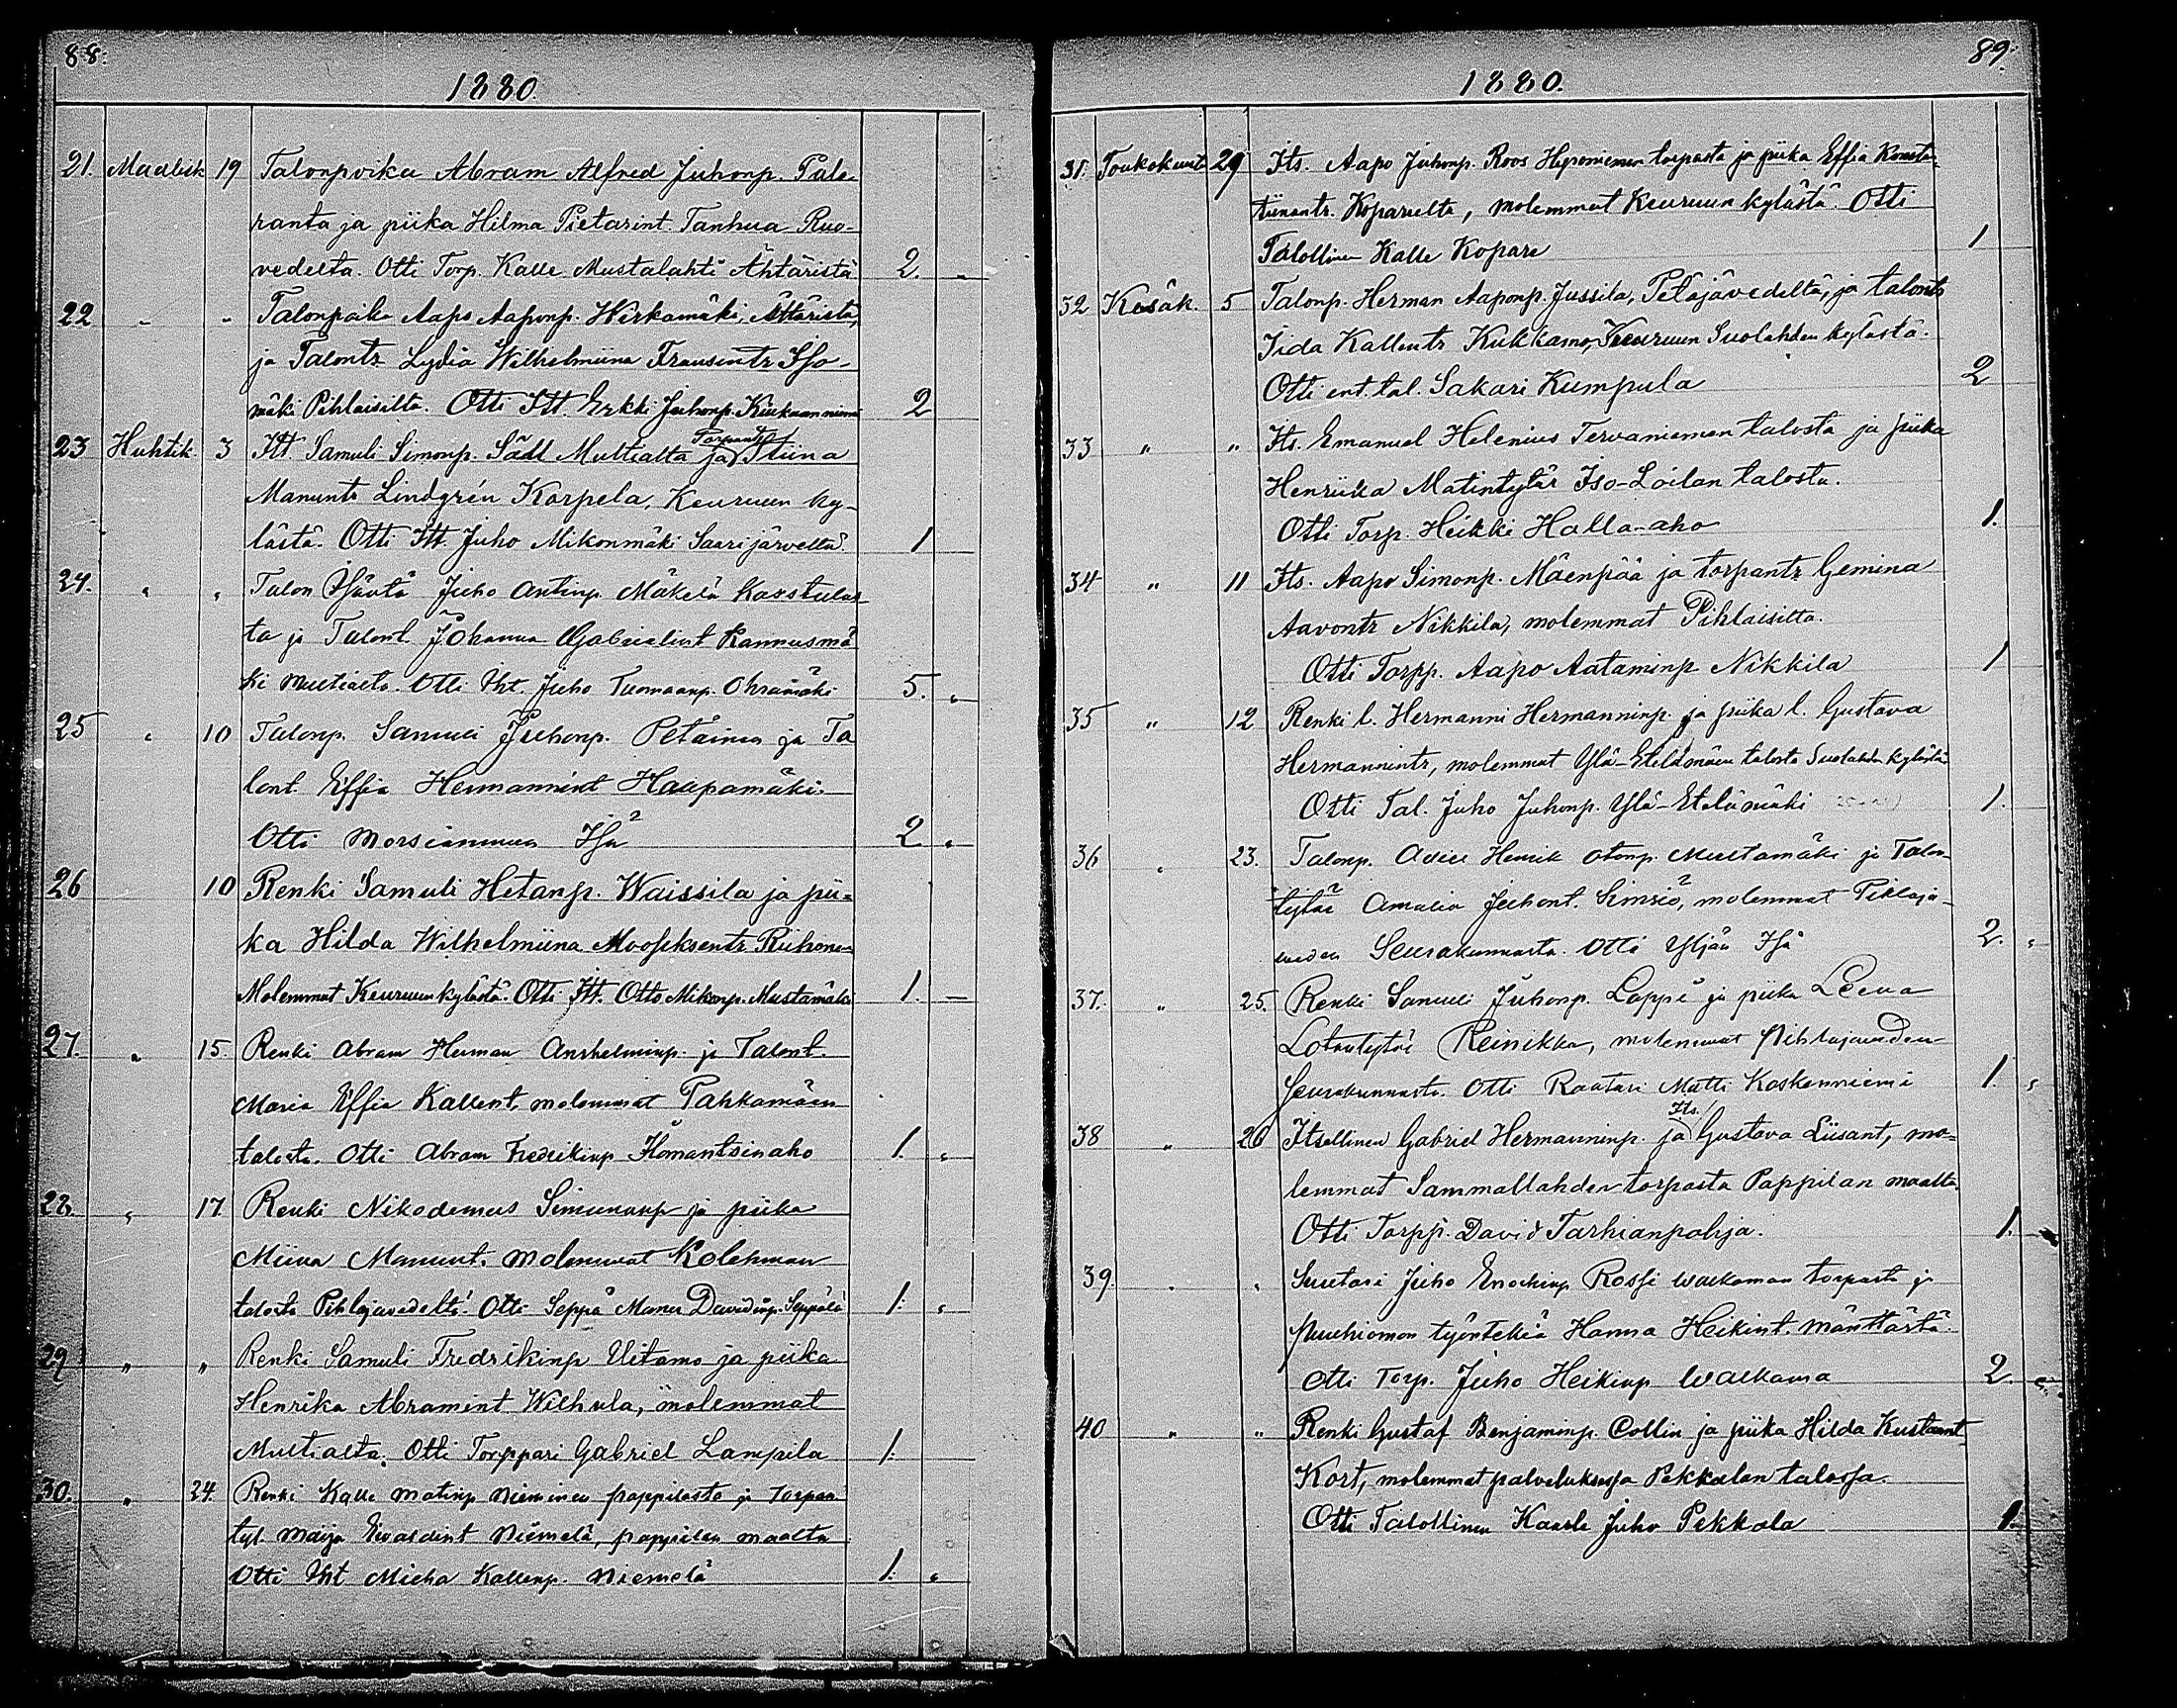 88.
1880.
21. Maalisk 19 Talonpoika Abram Alfred Juhonp. Pale-
ranta ja piika Hilma Pietarint. Tanhua Ruo-
vedeltä. Otti Torp. Kalle Mustalahti Ähtäristä 2. -
22 " " Talonpoika Aapo Aaponp. Hirkamäki, Ättäristä,
ja Talontr Lydia Wilhelmiina Fransentr Iso-
mäki Pihlaisilta. Otti Itt. Erkki Juhonp. Kiukaanniemi 2
23 Huhtik. 3 Itt Samuli Simonp. Säll Multialta ja Torpantr Stiina
Manuntr Lindgrén Korpela, Keuruun ky-
lästä. Otti Itt. Juho Mikonmäki Saarijärveltä. 1
24. " " Talon Isäntä Juho Antinp. Mäkelä Karstulas-
ta ja Talont. Johanna Gabrielint Kannusmä
ki Multialta. Otti Iht. Juho Tuomaanp. Ohramäki 5. "
25 " 10 Talonp. Samuli Juhonp. Petäinen ja Ta
lont. Effia Hermannint Haapamäki.
Otti Morsiammen Isä 2. "
26 10 Renki Samuli Hetanp. Waissila ja pii=
ka Hilda Wilhelmiina Mooseksentr Riihonen
Molemmat Keuruunkylästä. Otti Itt. Otto Mikonp. Mustamäki 1. -
27. " 15. Renki Abram Herman Anshelminp. ja Talont.
Maria Effia Kallent, molemmat Pahkamäen
talosta. Otti Abram Fredrikinp Homantsinaho 1. "
28. " 17 Renki Nikodemus Simunanp ja piika
Miina Manunt. Molemmat Kolehman
talosta Pihlajavedeltä. Otti Seppä Manu Davidinp. Seppälä 1. "
29 " " Renki Samuli Fredrikinp Uitamo ja piika
Henrika Abramint Wilhula, molemmat
Multialta. Otti Torppari Gabriel Lampila 1.
30. " 24. Renki Kalle Matinp Nieminen pappilasta ja torpan
tyt. Maija Ewardint Niemelä, pappilan maalta
Otti Iht Micha Kallenp. Niemelä 1. "
89.
1880.
31. Toukokuuta 29 Its. Aapo Juhonp. Roos Heponiemen torpasta ja piika Effia Konsta-
tiinantr. Koparilta, molemmat Keuruun kylästä. Otti
Talollinen Kalle Kopare 1
32 Kesäk. 5 Talonp. Herman Aaponp. Jussila, Petäjävedeltä, ja talontr
Iida Kallentr Kukkamo, Keuruun Suolahden kylästä.
Otti ent. tal. Sakari Kumpula 2
33 " " Its. Emanuel Helenius Tervaniemen talosta ja piika
Henriika Matintytär Iso-Loilan talosta.
Otti Torp. Heikki Halla-aho 1.
34 " 11 Its. Aapo Simonp. Mäenpää ja torpantr Gemina
Aavontr Nikkila, molemmat Pihlaisilta.
Otti Torpp. Aapo Aataminp Nikkila 1
35 " 12 Renki l. Hermanni Hermanninp. ja piika l. Gustava
Hermannintr, molemmat Ylä-Etelämäen talosta Suolahden kylästä.
Otti Tal. Juho Juhonp. Ylä-Etelämäki 1.
36 " 23. Talonp. Henrik Otonp. Multamäki ja Talon-
tytär Amalia Juhont. Simsiö, molemmat Pihlaja-
veden Seurakunnasta. Otti Yljän Isä 2. "
37. " 25. Renki Samuli Juhonp. Lappi ja piika Leena
Lotantytär Reinikka, molemmat Pihlajaveden
Seurakunnasta. Otti Raatari Matti Koskenniemi 1. "
38 " 26 Itsellinen Gabriel Hermanninp. ja Its. Gustava Liisant, mo=
lemmat Sammallahden torpasta Pappilan maalta.
Otti Torpp. David Tarhianpohja. 1.
39. " " Suutari Juho Enochinp Rossi Walkaman torpasta ja
Puuhiomon työntekiä Hanna Heikint. Mänttästä.
Otti Torp. Juho Heikinp Walkama 2. "
40 " " Renki Gustaf Benjaminp. Collin ja piika Hilda Kustaant
Kort, molemmat palveluksessa Pekkalan talossa.
Otti Talollinen Kaarle Juho Pekkala 1.